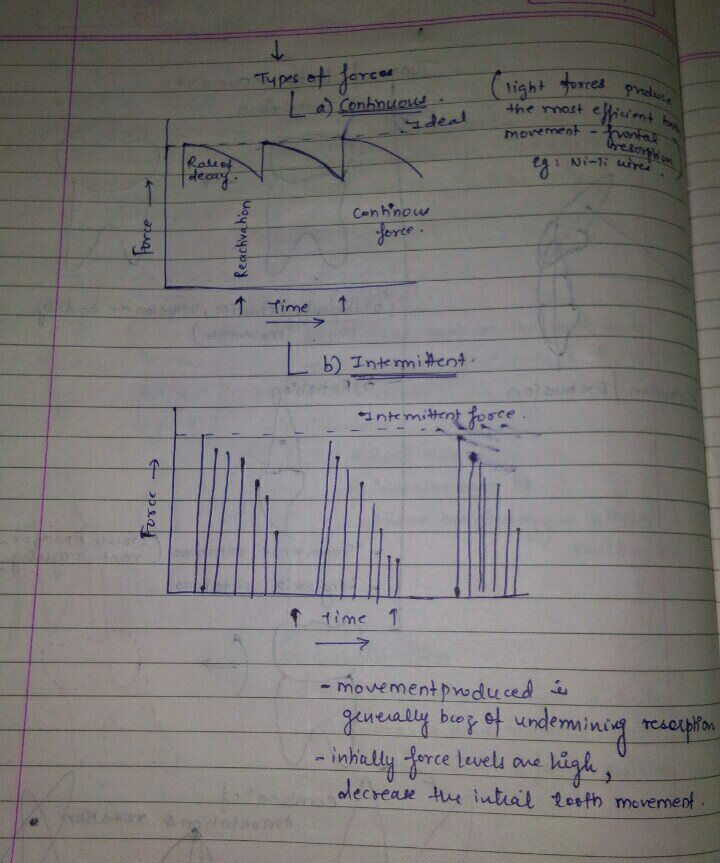 Types of forces
a) Continuous.
(light forces produce
the most efficient tooth
movement - frontal
resorption)
eg: Ni-Ti wires.
Ideal
Rate of
decay.
Force →
Reactivation
Continous
force.
Time
b) Intermittent.
Intermittent force.
Force →
Time
- movement produced is
generally bcoz of undermining resorption
- initially force levels are high,
decrease the initial tooth movement.